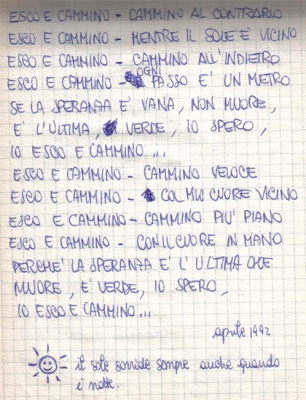 ESCO E CAMMINO - CAMMINO AL CONTRARIO
ESCO E CAMMINO - MENTRE IL SOLE E' VICINO
ESCO E CAMMINO - CAMMINO ALL'INDIETRO
ESCO E CAMMINO - OGNI PASSO E' UN METRO
SE LA SPERANZA E' VANA, NON MUORE,
E' L'ULTIMA, VERDE, IO SPERO,
IO ESCO E CAMMINO...
ESCO E CAMMINO - CAMMINO VELOCE
ESCO E CAMMINO - COL MIO CUORE VICINO
ESCO E CAMMINO - CAMMINO PIU' PIANO
ESCO E CAMMINO - CON IL CUORE IN MANO
PERCHE' LA SPERANZA E' L'ULTIMA CHE
MUORE, E' VERDE, IO SPERO,
IO ESCO E CAMMINO...
aprile 1992
il sole sorride sempre anche quando
è notte.